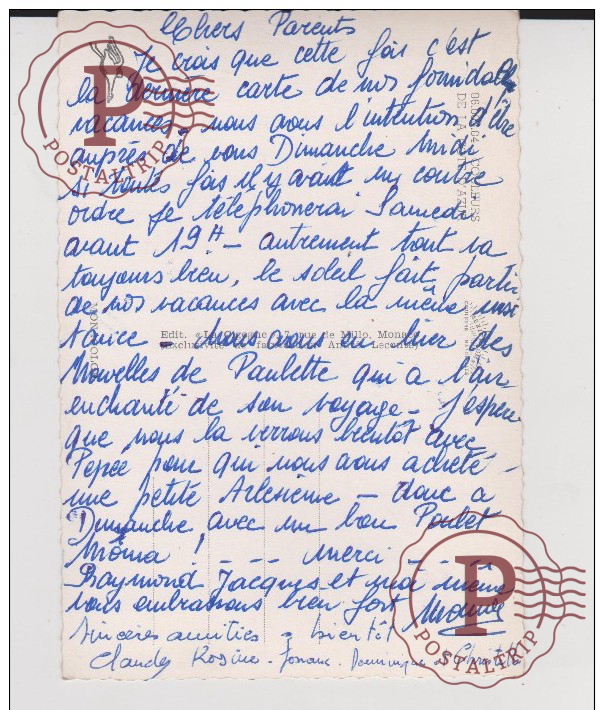 Chers Parents
Je crois que cette fois c'est
la dernière carte de nos formidable
vacances, nous avons l'intention d'être
auprès de vous Dimanche Midi
si toutes fois il y avait un contre
ordre je téléphonerai Samedi
avant 19H - autrement tout va
toujours bien, le soleil fait parti
de nos vacances avec la même insi
tance - nous avons eu hier des
Nouvelles de Paulette qui a l'air
enchanté de son voyage - J'espère
que nous la verrons bientôt avec
Pépée pour qui nous avons acheté
une petite Arlésienne - donc a
Dimanche avec un bon Poulet
Môma ! _ _ _ merci _ _ _
Raymond Jacques et moi même
vous embrassons bien fort
Sincères amitiés a bientôt
Claude Rosine - Dominique
Edit. « La Cigogne », 7, rue de Millo, Monaco
POSTALTRIP
POSTALTRIP